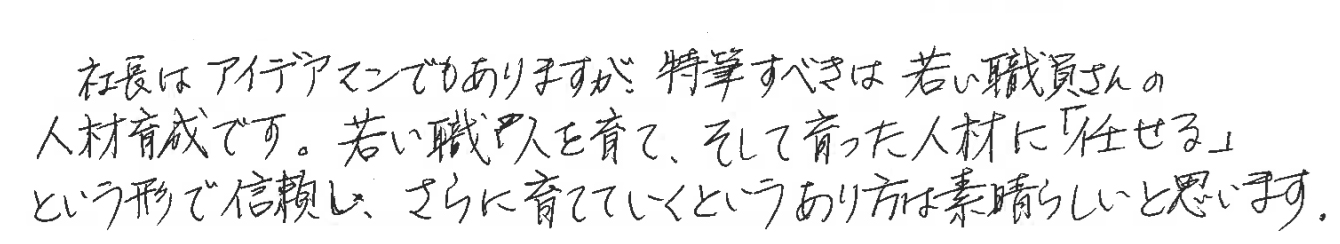 社長はアイデアマンでもありますが、特筆すべきは若い職員さんの
人材育成です。若い職人を育て、そして育った人材に「任せる」
という形で信頼し、さらに育てていくというあり方は素晴らしいと思います.